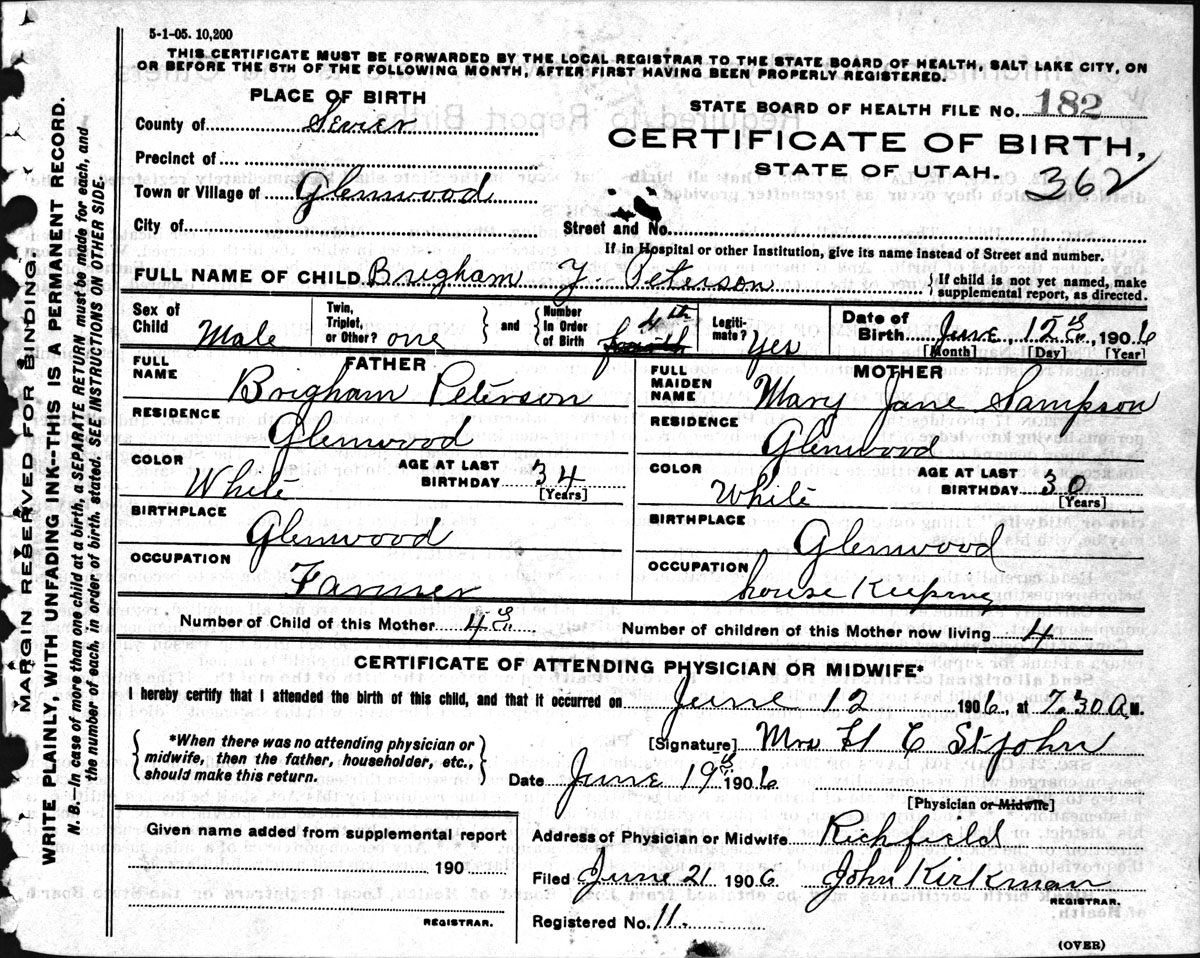 5-1-05. 10,200
THIS CERTIFICATE MUST BE FORWARDED BY THE LOCAL REGISTRAR TO THE STATE BOARD OF HEALTH, SALT LAKE CITY, ON
OR BEFORE THE 5TH OF THE FOLLOWING MONTH, AFTER FIRST HAVING BEEN PROPERLY REGISTERED.
PLACE OF BIRTH
STATE BOARD OF HEALTH FILE No. 182
County of Sevier
CERTIFICATE OF BIRTH,
Precinct of
STATE OF UTAH.
362
Town or Village of Glenwood
City of
Street and No.
If in Hospital or other Institution, give its name instead of Street and number.
FULL NAME OF CHILD Brigham Y. Peterson
{If child is not yet named, make
supplemental report, as directed.
Sex of Child Male
Twin, Triplet, or Other? one } and { Number In Order of Birth 4th fourth
Legiti-mate? Yes
Date of Birth June, 12th, 1906
[Month] [Day] [Year]
FATHER
FULL NAME Brigham Peterson
RESIDENCE Glenwood
COLOR White
AGE AT LAST BIRTHDAY 34
[Years]
BIRTHPLACE Glenwood
OCCUPATION Farmer
MOTHER
FULL MAIDEN NAME Mary Jane Sampson
RESIDENCE Glenwood
COLOR White
AGE AT LAST BIRTHDAY 30
[Years]
BIRTHPLACE Glenwood
OCCUPATION house Keeping
Number of Child of this Mother 4th
Number of children of this Mother now living 4
CERTIFICATE OF ATTENDING PHYSICIAN OR MIDWIFE*
I hereby certify that I attended the birth of this child, and that it occurred on June 12 1906, at 7.30 A.M.
{ *When there was no attending physician or
midwife, then the father, householder, etc.,
should make this return. }
[Signature] Mrs H E St john
Date June 19th 1906
[Physician or Midwife]
Given name added from supplemental report
190
REGISTRAR.
Address of Physician or Midwife Richfield
Filed June 21 1906 John Kirkman
REGISTRAR.
Registered No. 11.
(OVER)
MARGIN RESERVED FOR BINDING.
WRITE PLAINLY, WITH UNFADING INK--THIS IS A PERMANENT RECORD.
N. B.--In case of more than one child at a birth, a SEPARATE RETURN must be made for each, and
the number of each, in order of birth, stated. SEE INSTRUCTIONS ON OTHER SIDE.